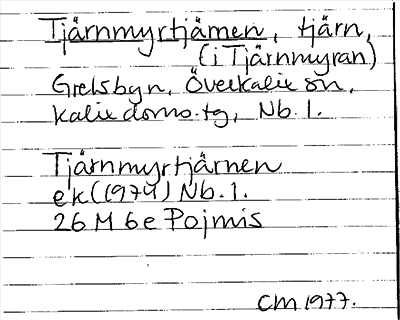 Tjärnmyrtjärnen, tjärn,
(i Tjärnmyran)
Grelsbyn, Överkalix sn,
Kalix doms.tg, Nb. l.
Tjärnmyrtjärnen
ek (1974) Nb. l.
26 M 6e Pojmis
CM 1977.